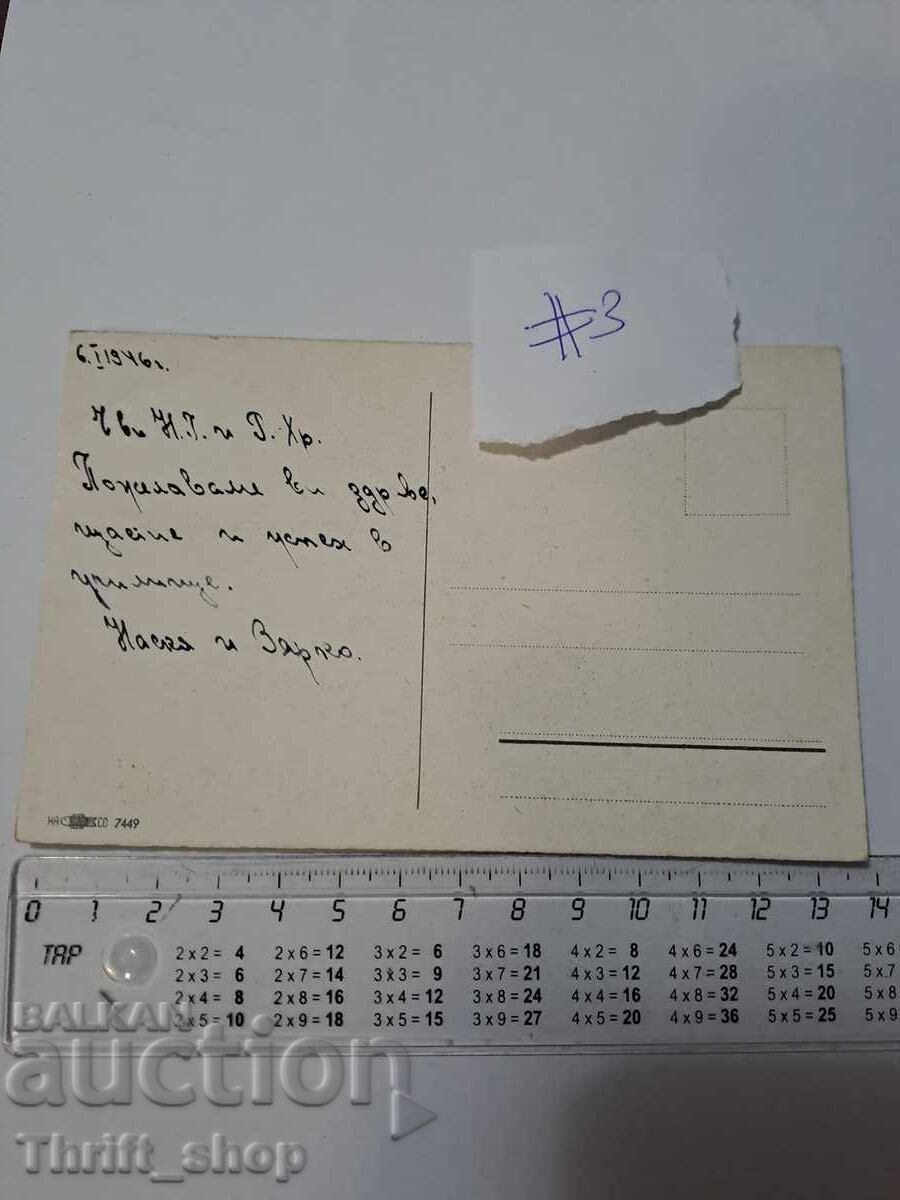 #3
6.I 1946 г.
Чви Н.Г. и Р. Хр.
Пожелаваме ви здраве,
щастие и успех в
училище.
Наска и Зарко.
НА СО 7449
0 1 2 3 4 5 6 7 8 9 10 11 12 13 14
TAP
2 x 2 = 4 2 x 6 = 12 3 x 2 = 6 3 x 6 = 18 4 x 2 = 8 4 x 6 = 24 5 x 2 = 10 5 x 6
2 x 3 = 6 2 x 7 = 14 3 x 3 = 9 3 x 7 = 21 4 x 3 = 12 4 x 7 = 28 5 x 3 = 15 5 x 7
2 x 4 = 8 2 x 8 = 16 3 x 4 = 12 3 x 8 = 24 4 x 4 = 16 4 x 8 = 32 5 x 4 = 20 5 x 8
2 x 5 = 10 2 x 9 = 18 3 x 5 = 15 3 x 9 = 27 4 x 5 = 20 4 x 9 = 36 5 x 5 = 25 5 x 9
BALKAN
auction
Thrift_shop